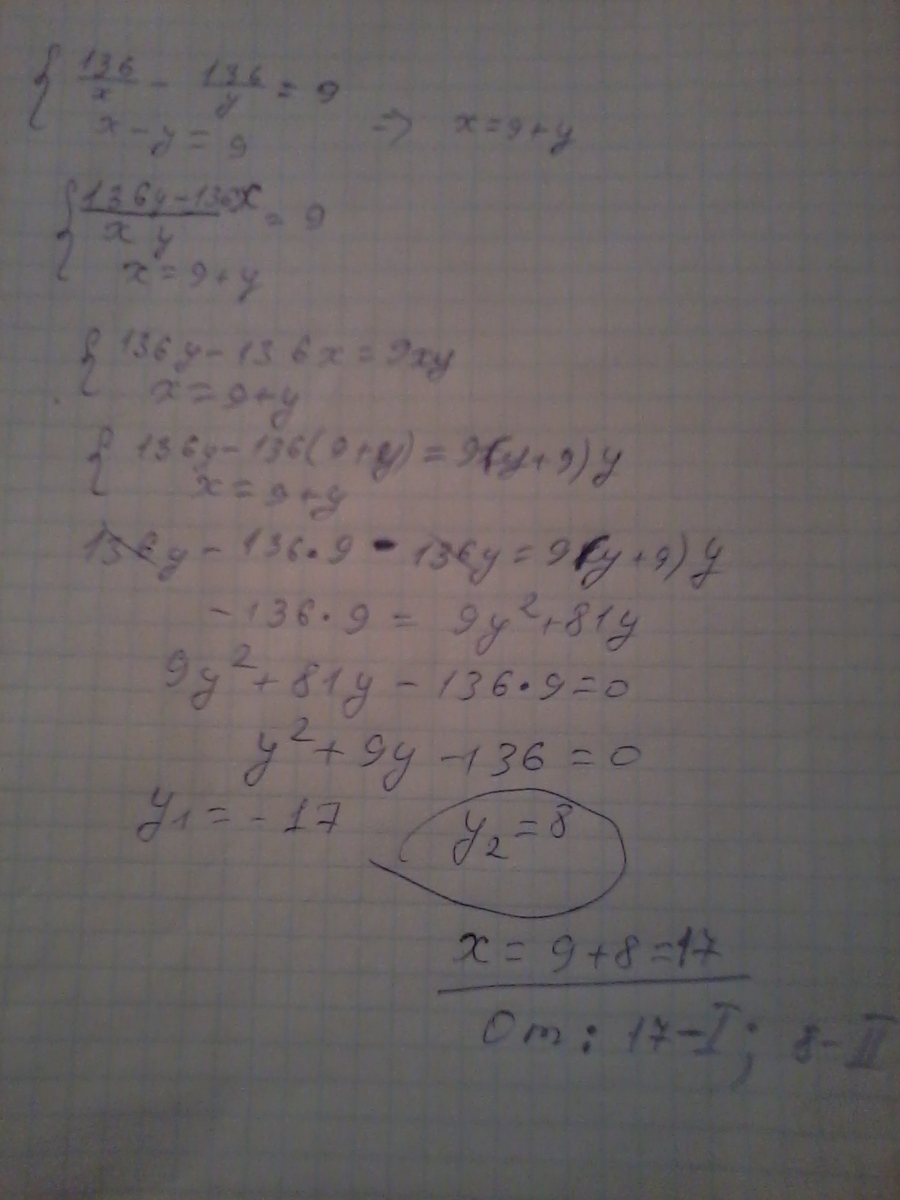 { 136/x - 136/y = 9
x - y = 9 => x = 9 + y
{ (136y - 136x)/(xy) = 9
x = 9 + y
{ 136y - 136x = 9xy
x = 9 + y
{ 136y - 136(9 + y) = 9(y + 9)y
x = 9 + y
136y - 136•9 - 136y = 9(y + 9)y
-136•9 = 9y² + 81y
9y² + 81y - 136•9 = 0
y² + 9y - 136 = 0
y₁ = -17 y₂ = 8
x = 9 + 8 = 17
От: 17 - I; 8 - II